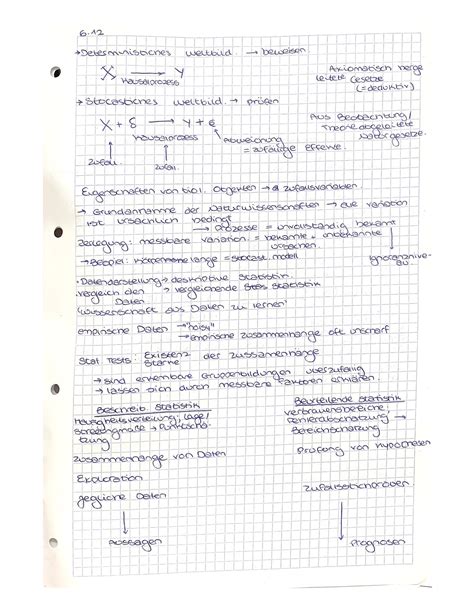 6.12
→Deterministisches Weltbild. → beweisen.
X → Y
Kausalprozess
Axiomatisch herge
leitete Gesetze
(=deduktiv)
→ Stocastisches Weltbild. → prüfen
X + δ → Y + ε
Kausalprozess
Zufall
Zufall
Abweichung
= zufällige Effekte.
Aus Beobachtung/
Theorie abgeleitete
Naturgesetze.
Eigenschaften von biol. Objekten → Zufallsvariablen.
→ Grundannahme der Naturwissenschaften → alle Variation
ist ursächlich bedingt
→ Prozesse = unvollständig bekannt
Zerlegung: messbare Variation = bekannte + unbekannte
Ursachen.
→ Beispiel: Körpermerkmale = stochast. modell
Ignoranznive-
au.
·Datendarstellung → deskriptive Statistik.
vergleich den → vergleichende Statistik
Daten
"Wissenschaft aus Daten zu lernen"
empirische Daten → "noisy"
→ empirische Zusammenhänge oft unscharf
Stat Tests: Existenz der Zusammenhänge
Stärke
→ sind erkennbare Gruppenbildungen überzufällig
→ lassen sich durch messbare Faktoren erklären.
Beschreib. Statistik
Häufigkeitsverteilung, Lage/
Streuungsmaße → Punktschä-
tzung
Zusammenhänge von Daten
Exploration
jegliche Daten
Aussagen
Beurteilende Statistik
Vertrauensbereiche,
Fehlerabschätzung →
Bereichschätzung
Prüfung von Hypothesen
Zufallsstichproben
Prognosen